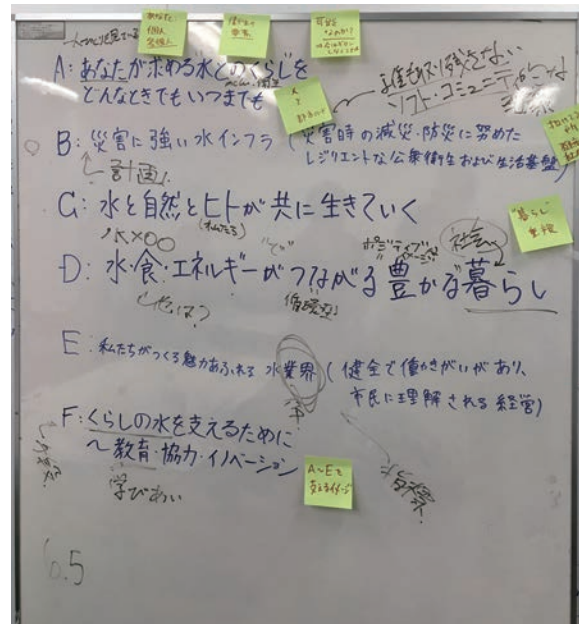 あなた
個人
可能
なのか?
A: あなたが求める水とのくらしを
どんなときでもいつまでも
誰も取り残さない
ソフト・コミュニティ的な
人
と
B: 災害に強い水インフラ (災害時の減災・防災に努めた
レジリエントな公衆衛生および生活基盤)
計画
C: 水と自然とヒトが共に生きていく
(私たち)
水×〇〇
"で"
ポジティブな
社会
"暮らし"
D: 水・食・エネルギーがつながる豊かな暮らし
他は?
循環型
E: 私たちがつくる魅力あふれる水業界 (健全で働きがいがあり、
市民に理解される経営)
F: くらしの水を支えるために
~教育・協力・イノベーション
学びあい
手段
A~Eを
支えるイメージ
指標?
6.5